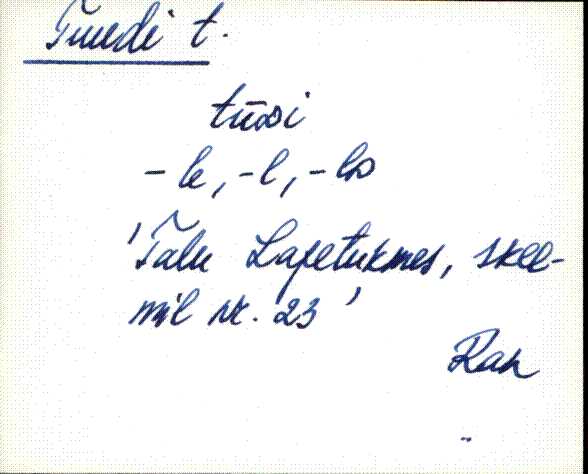 Tuudi t.
tūᴅi
- le, -l, - lt
'Talu Lapetukmes, skee-
mil nr. 23'
Ran